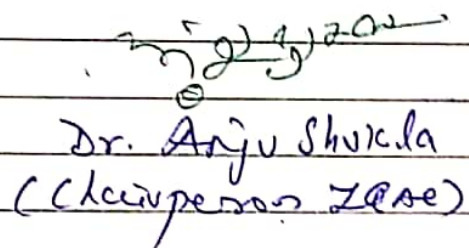 Dr. Anju Shukla
(Chairperson IQAC)